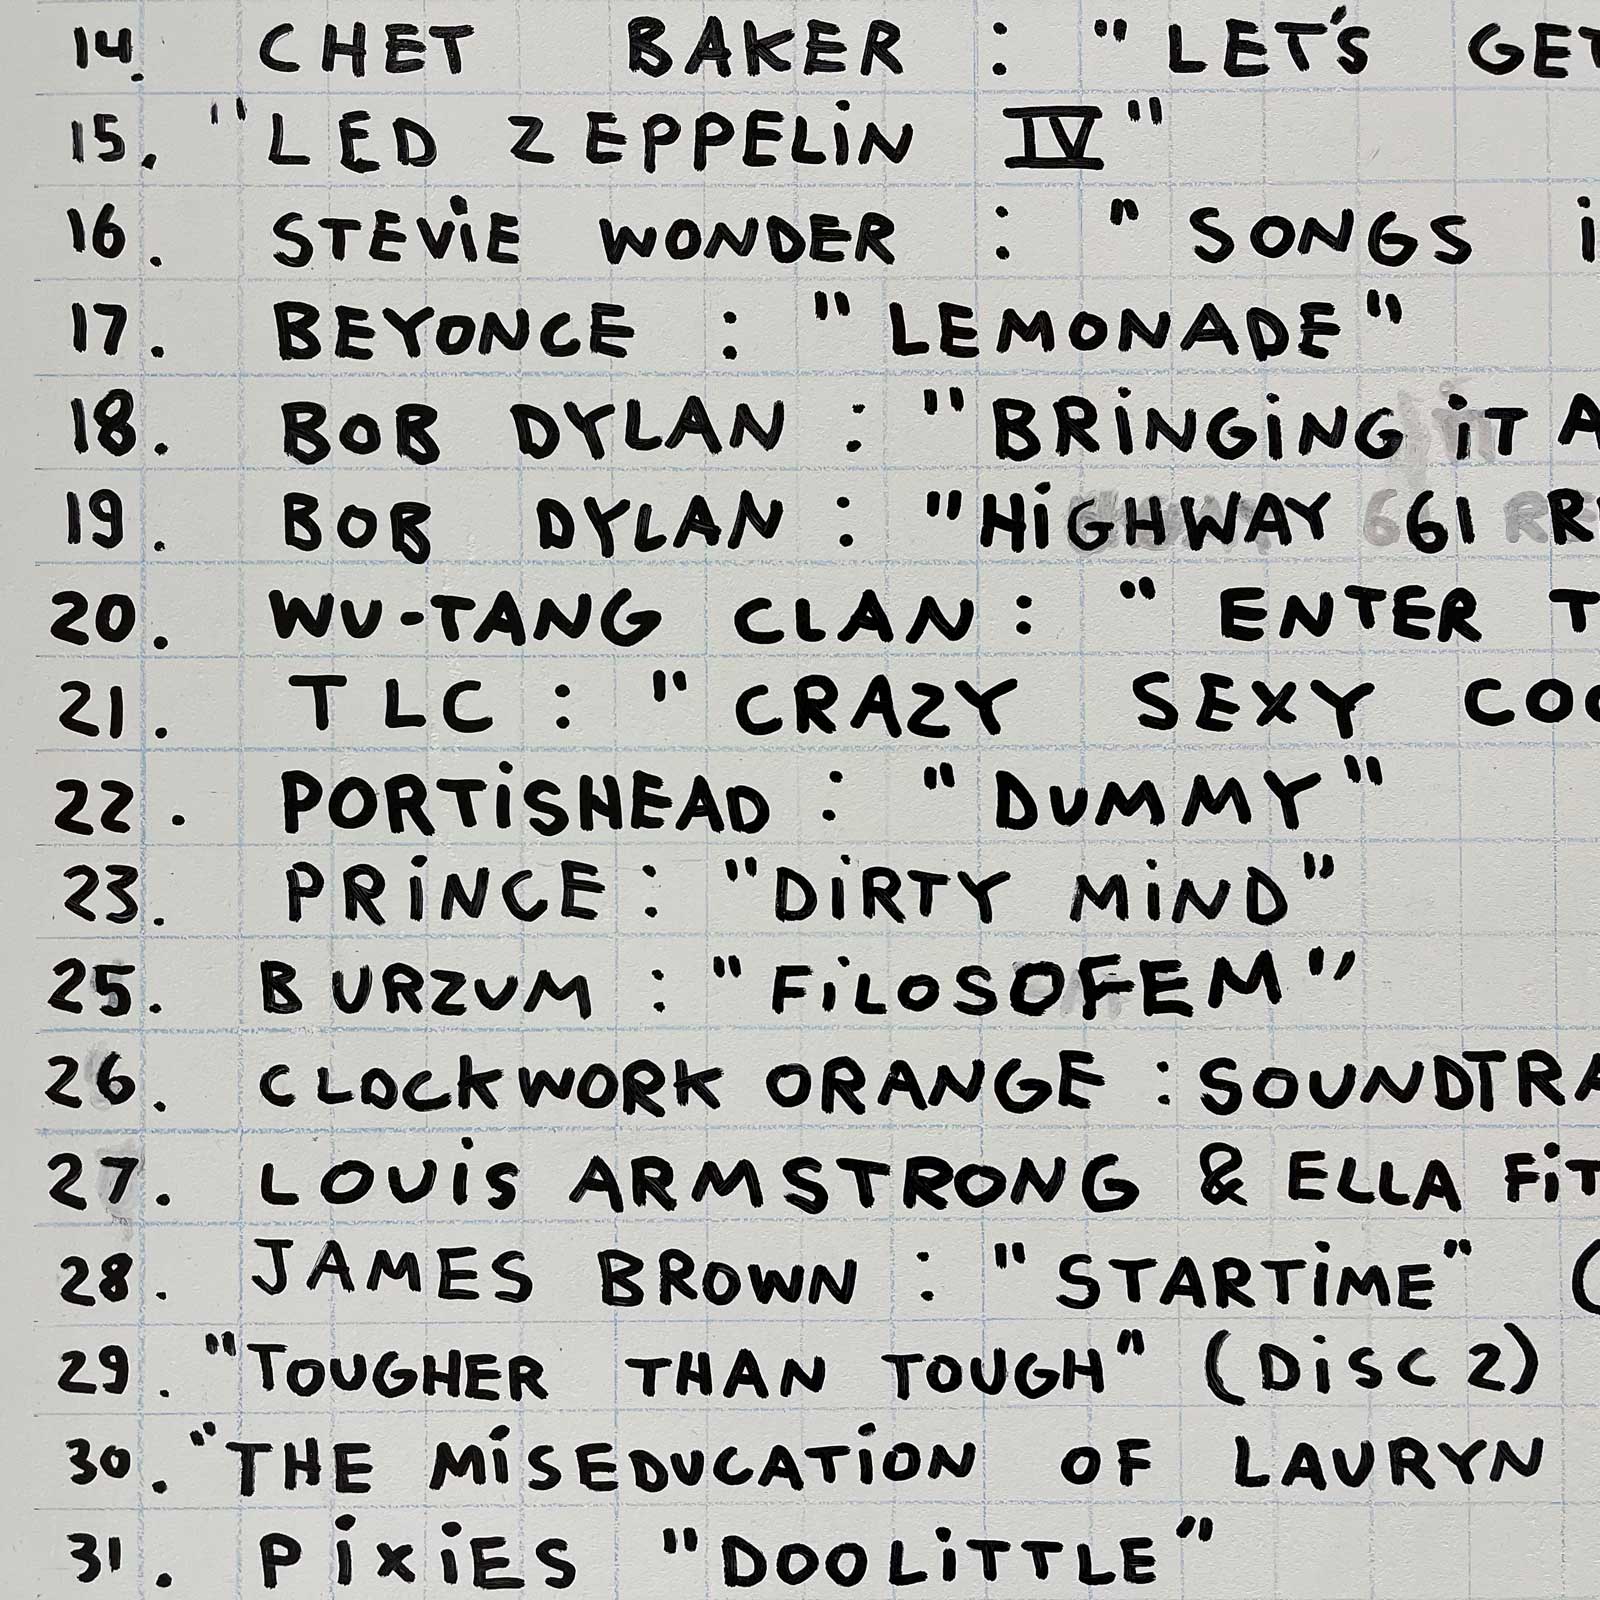 14. CHET BAKER : "LET'S GET
15. "LED ZEPPELiN IV"
16. STEViE WONDER : "SONGS i
17. BEYONCE : "LEMONADE"
18. BOB DYLAN : "BRiNGiNG iT A
19. BOB DYLAN : "HiGHWAY 661 RR
20. WU-TANG CLAN : "ENTER T
21. TLC : "CRAZY SEXY COO
22. PORTiSHEAD : "DUMMY"
23. PRiNCE : "DiRTY MiND"
25. BURZUM : "FiLOSOFEM"
26. CLOCKWORK ORANGE : SOUNDTRA
27. LOUiS ARMSTRONG & ELLA FiT
28. JAMES BROWN : "STARTiME" (
29. "TOUGHER THAN TOUGH" (DiSC 2)
30. "THE MiSEDUCATiON OF LAURYN
31. PiXiES "DOOLiTTLE"